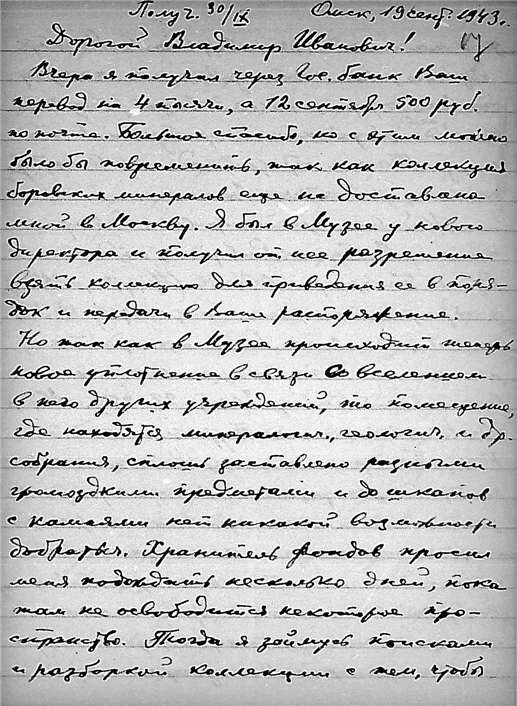 Получ. 30/IX Омск, 19 сент. 1943 г.
Дорогой Владимир Иванович!
Вчера я получил через Гос. банк Ваш
перевод на 4 тысячи, а 12 сентября 500 руб.
по почте. Большое спасибо, но с этим можно
было бы повременить, так как коллекция
боровских минералов еще не доставлена
мной в Москву. Я был в Музее у нового
директора и получил от нее разрешение
взять коллекцию для приведения ее в поря-
док и передачи в Ваше распоряжение.
Но так как в Музее происходит теперь
новое уплотнение в связи со вселением
в него других учреждений, то помещение,
где находятся минералогич., геологич. и др.
собрания, сплошь заставлено разными
громоздкими предметами и до шкапов
с камнями нет никакой возможности
добраться. Хранитель фондов просил
меня подождать несколько дней, пока
там не освободится некоторое про-
странство. Тогда я займусь поисками
и разборкой коллекции с тем, чтобы